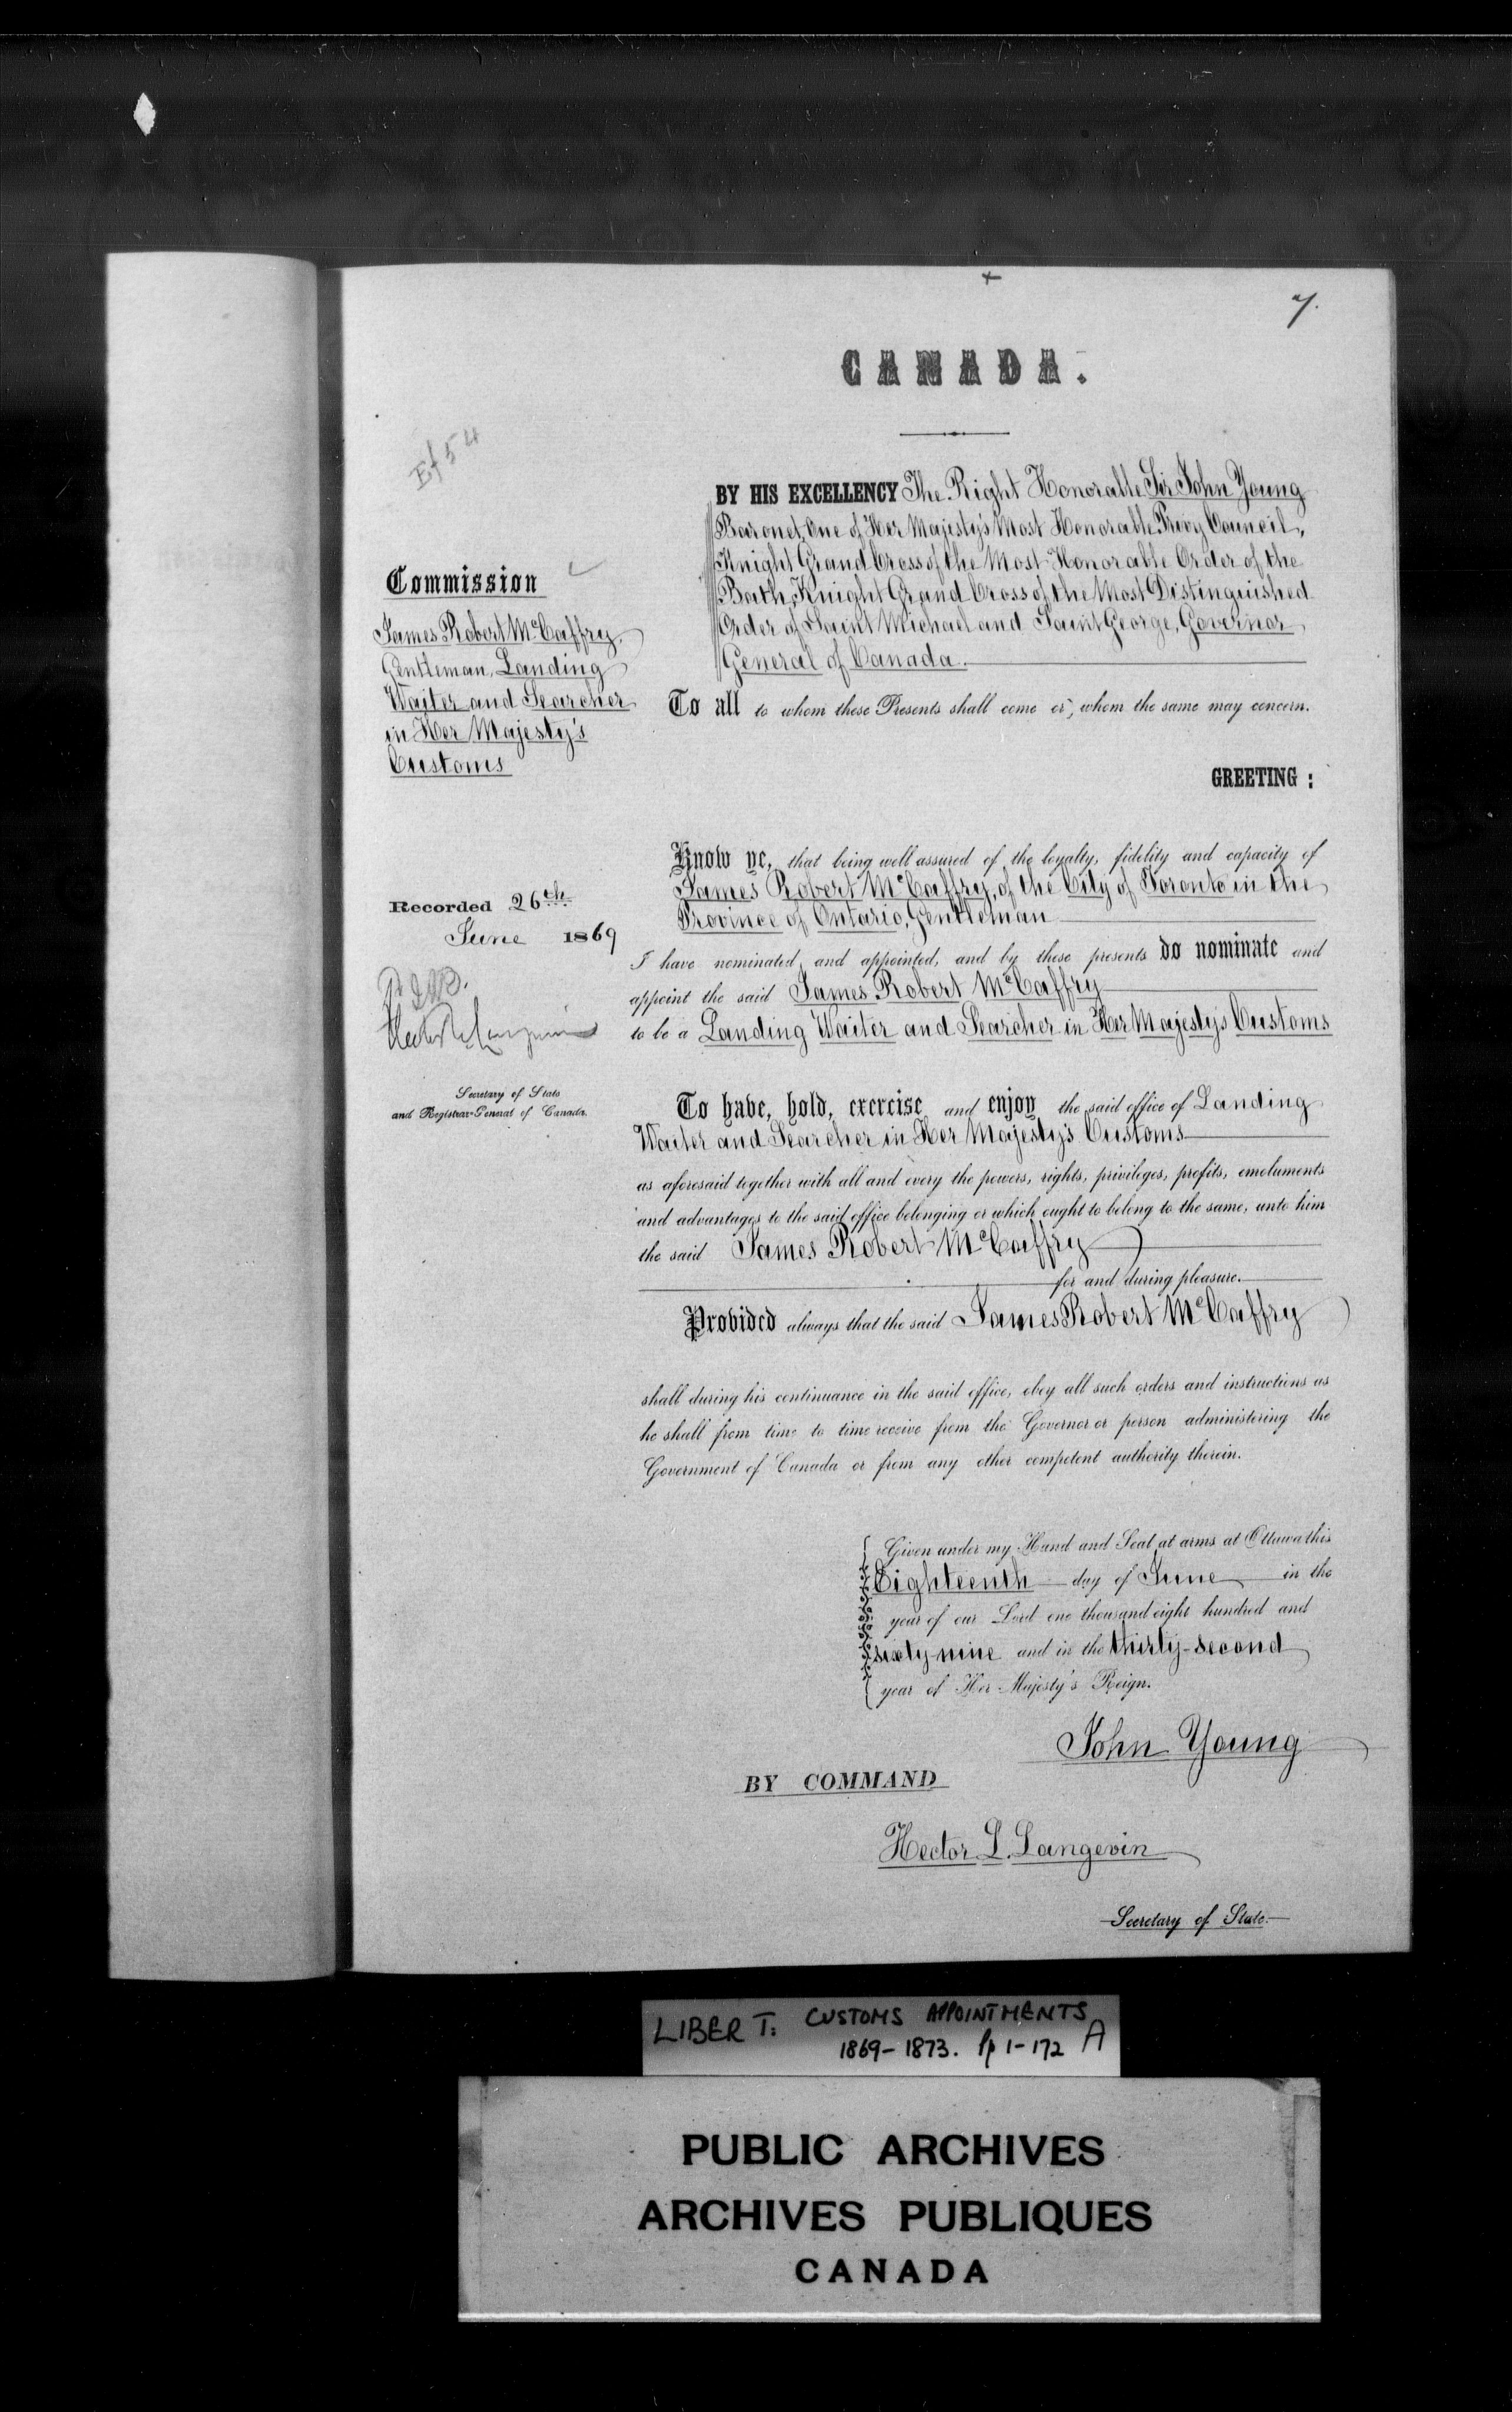 7.
CANADA.
Ef 54
Commission
James Robert McCaffry,
Gentleman, Landing
Waiter and Searcher
in Her Majesty's
Customs
Recorded 26th
June 1869
Secretary of State
and Registrar-General of Canada.
BY HIS EXCELLENCY The Right Honorable Sir John Young
Baronet, One of Her Majesty's Most Honorable Privy Council,
Knight Grand Cross of the Most Honorable Order of the
Bath, Knight Grand Cross of the Most Distinguished
Order of Saint Michael and Saint George, Governor
General of Canada.
To all to whom these Presents shall come or, whom the same may concern.
GREETING :
Know ye, that being well assured of the loyalty, fidelity and capacity of
James Robert McCaffry, of the City of Toronto in the
Province of Ontario, Gentleman
I have nominated, and appointed, and by these presents do nominate and
appoint the said James Robert McCaffry
to be a Landing Waiter and Searcher in Her Majesty's Customs
To have, hold, exercise and enjoy the said office of Landing
Waiter and Searcher in Her Majesty's Customs
as aforesaid together with all and every the powers, rights, privileges, profits, emoluments
and advantages to the said office belonging or which ought to belong to the same, unto him
the said James Robert McCaffry
for and during pleasure.
Provided always that the said James Robert McCaffry
shall during his continuance in the said office, obey all such orders and instructions as
he shall from time to time receive from the Governor or person administering the
Government of Canada or from any other competent authority therein.
Given under my Hand and Seal at arms at Ottawa this
Eighteenth day of June in the
year of our Lord one thousand eight hundred and
sixty-nine and in the thirty-second
year of Her Majesty's Reign.
John Young
BY COMMAND
Hector L. Langevin
Secretary of State.
LIBER T: CUSTOMS APPOINTMENTS
1869-1873. Pp 1-172 A
PUBLIC ARCHIVES
ARCHIVES PUBLIQUES
CANADA